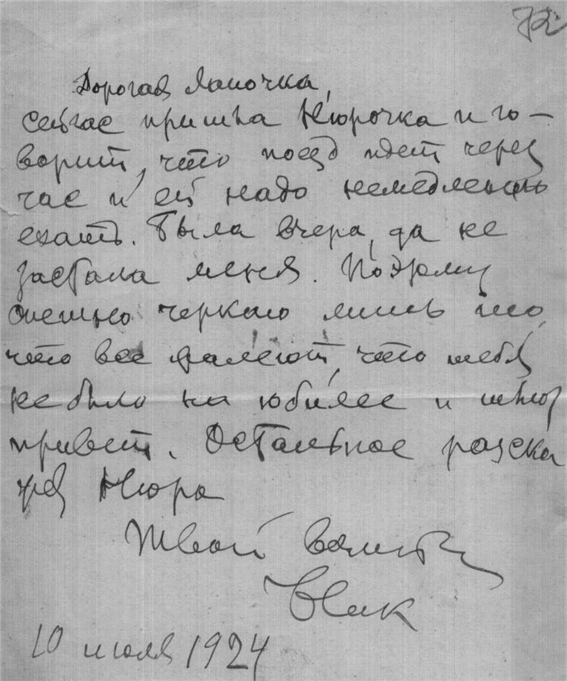 72
Дорогая Лапочка,
сейчас пришла Нюрочка и го-
ворит, что поезд идет через
час и ей надо немедленно
ехать. Была вчера, да не
застала меня. Поэтому
спешно черкаю лишь то,
что все жалеют, что тебя
не было на юбилее и шлют
привет. Остальное разска
жет Нюра
Твой
10 июля 1924